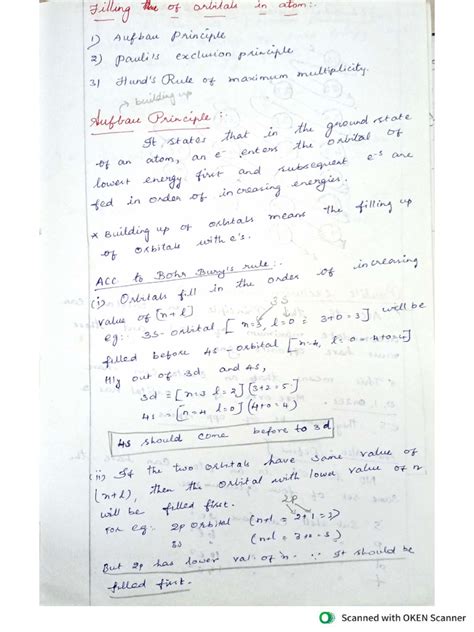 Filling the of orbitals in atom:-
1) Aufbau Principle
2) Pauli's exclusion principle
3) Hund's Rule of maximum multiplicity.
building up
Aufbau Principle:
It states that in the ground state
of an atom, an e⁻ enters the orbital of
lowest energy first and subsequent e⁻s are
fed in order of increasing energies.
* Building up of orbitals means the filling up
of orbitals with e⁻s.
ACC to Bohr Bury's rule:-
(i) Orbitals fill in the order of increasing
value of [n+l]
3s
eg:- 3s-orbital [n=3, l=0 = 3+0=3] will be
filled before 4s-orbital [n=4, l=0 = 4+0=4]
lly out of 3d and 4s,
3d = [n=3 l=2] (3+2=5)
4s = [n=4 l=0] (4+0=4)
4s should come before to 3d
(ii) If the two orbitals have same value of
(n+l), then the orbital with lower value of n
will be filled first.
2p
For eg:- 2p orbital (n+l = 2+1=3)
3s (n+l = 3+0=3)
But 2p has lower val of n. ∵ It should be
filled first.
Scanned with OKEN Scanner